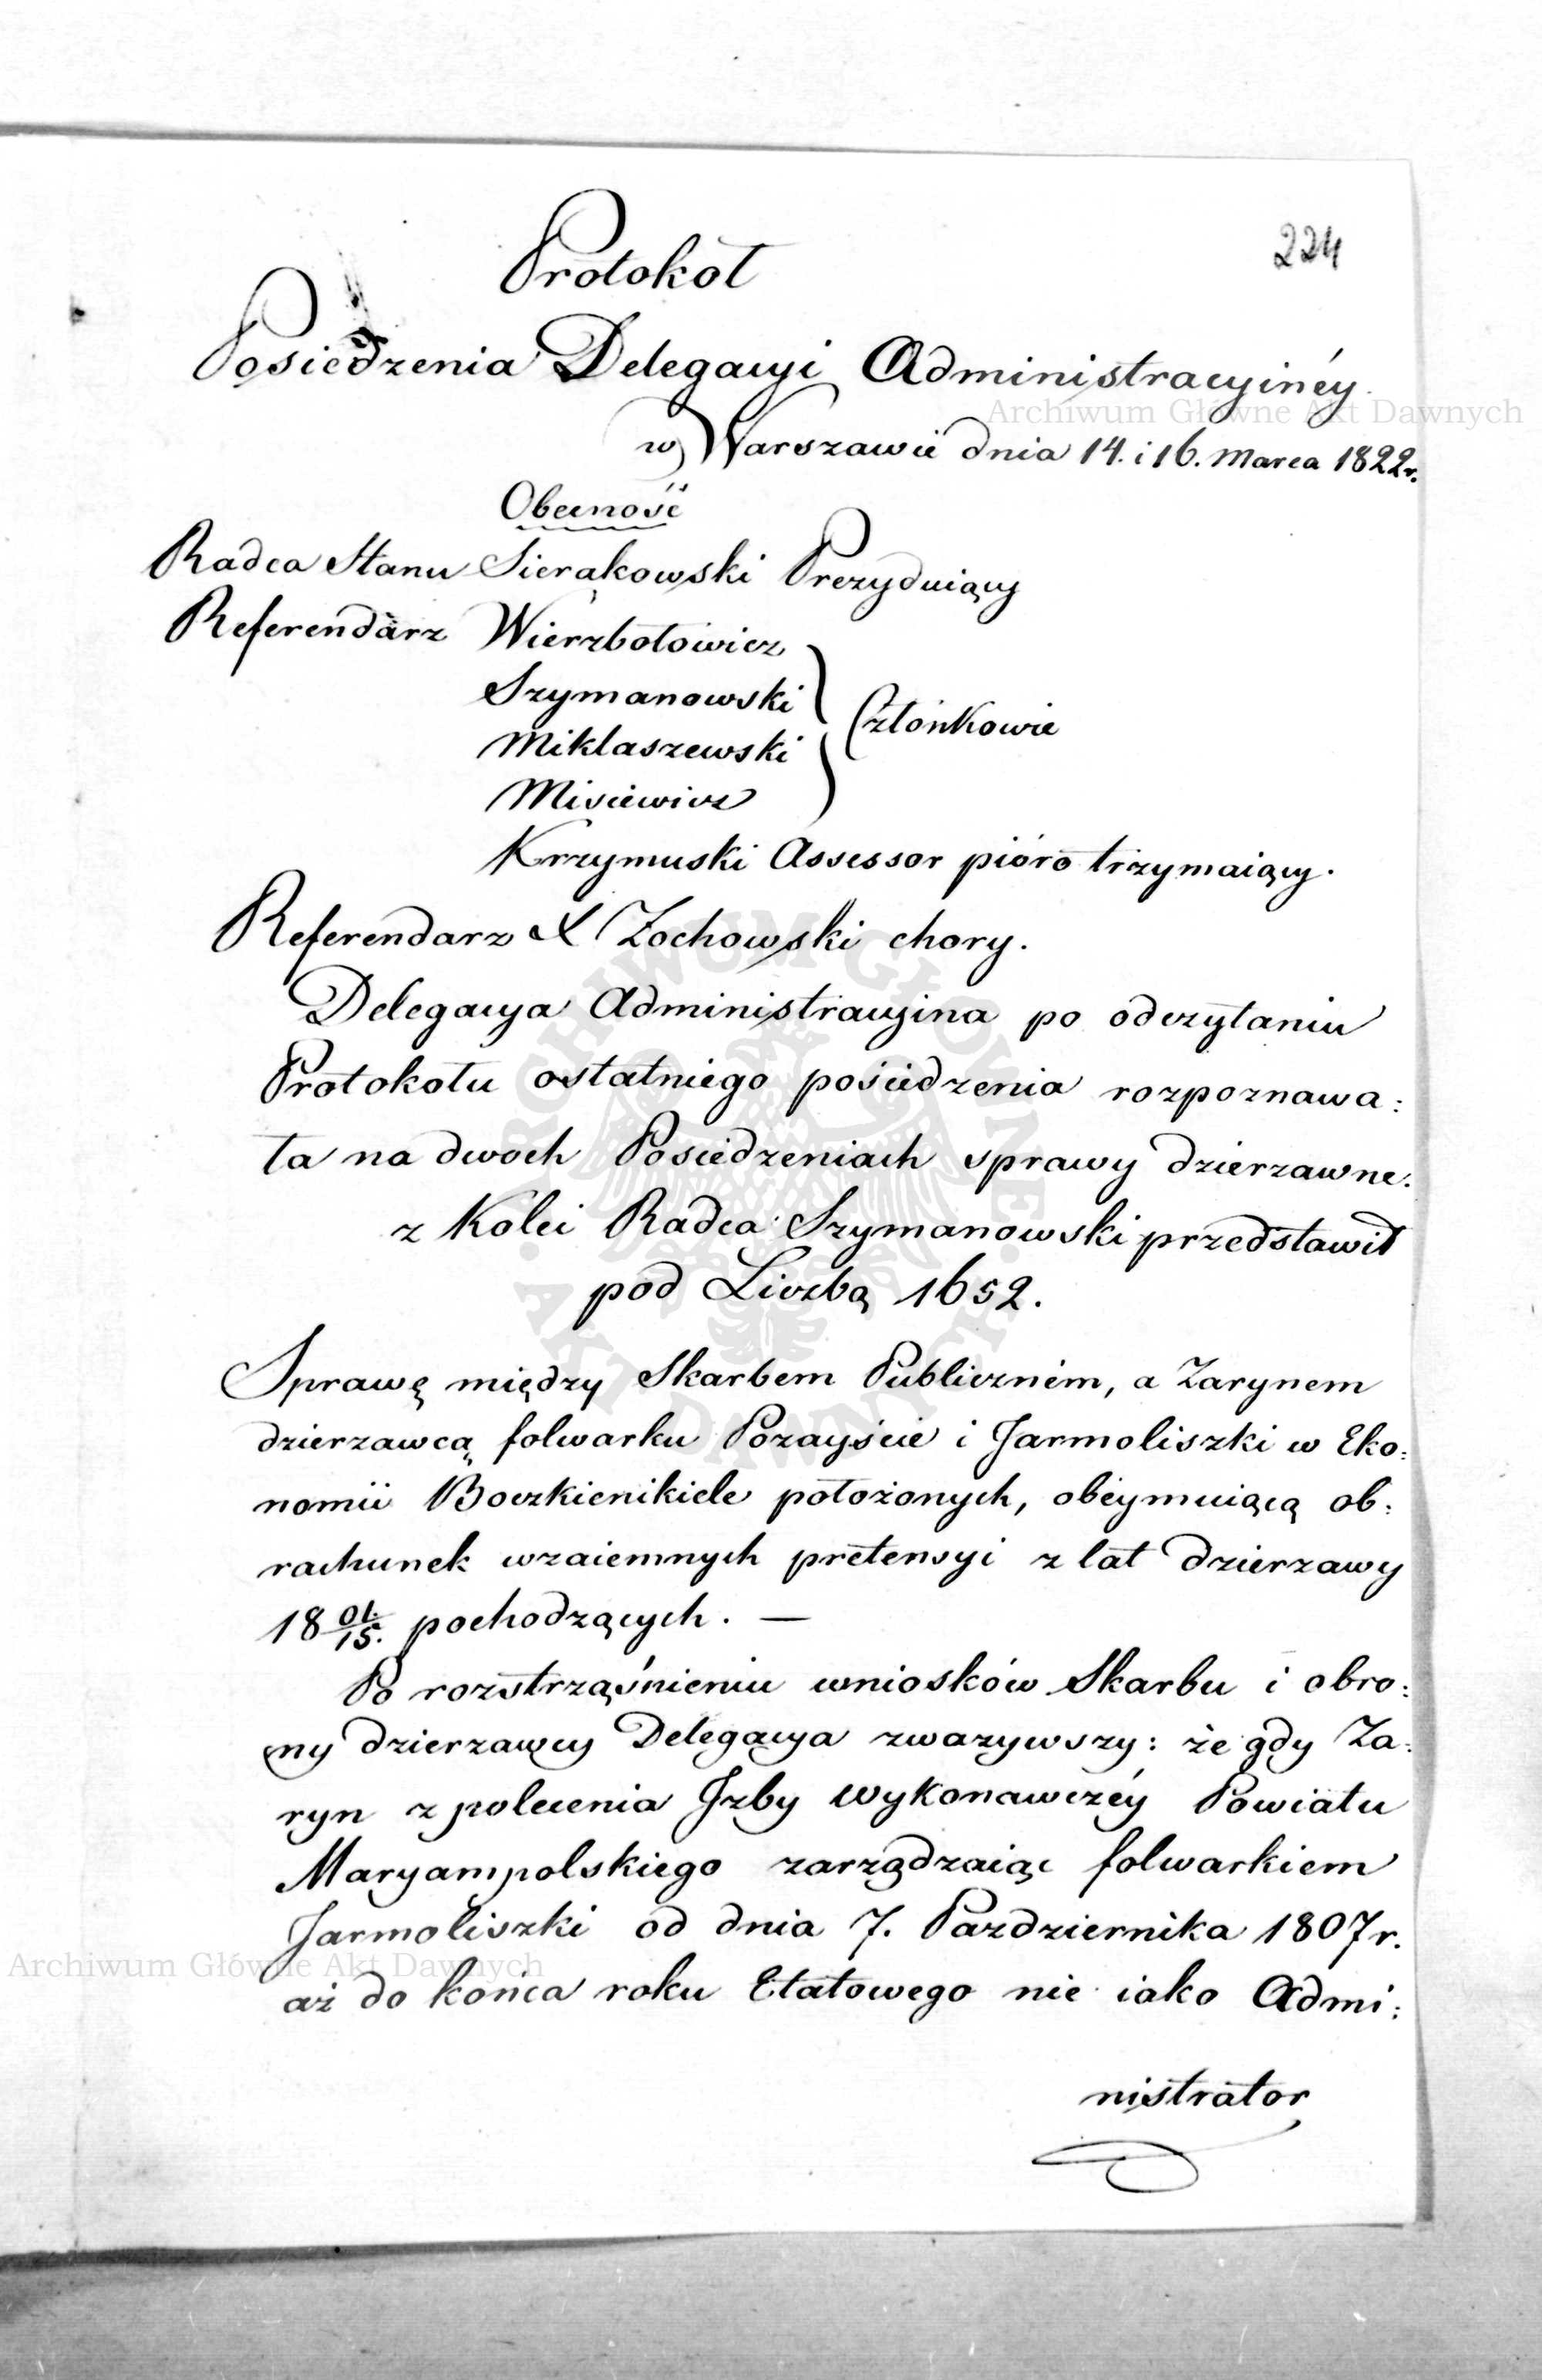 224
Protokół
Posiedzenia Delegacyi Administracyinéy
w Warszawie dnia 14. i 16. Marca 1822 r.
Obecność
Radca Stanu Sierakowski Prezyduiący
Referendarz Wierzbołowicz
Szymanowski
Członkowie
Miklaszewski
Misiewicz
Krzymuski Assessor pióro trzymaiący.
Referendarz X Żochowski chory.
Delegacya Administracyina po odczytaniu
Protokołu ostatniego posiedzenia rozpoznawa:
ła na dwoch Posiedzeniach sprawy dzierzawne.
z Kolei Radca Szymanowski przedstawił
pod Liczbą 1652.
Sprawę między Skarbem Publiczném, a Zarynem
dzierzawcą folwarku Pozayście i Jarmoliszki w Eko:
nomii Boczkienikiele położonych, obéymuiącą ob:
rachunek wzaiemnych pretensyi z lat dzierzawy
18 01/15. pochodzących. —
Po roztrząśnieniu wniosków Skarbu i obro:
ny dzierzawcy Delegacya zwazywszy: że gdy Za:
ryn z polecenia Jzby Wykonawczéy Powiatu
Maryampolskiego zarządzaiąc folwarkiem
Jarmoliszki od dnia 7. Pazdziernika 1807 r.
aż do końca roku Etatowego nie iako Admi:
nistrator
Archiwum Główne Akt Dawnych
Archiwum Główne Akt Dawnych
ARCHIWUM GŁÓWNE AKT DAWNYCH